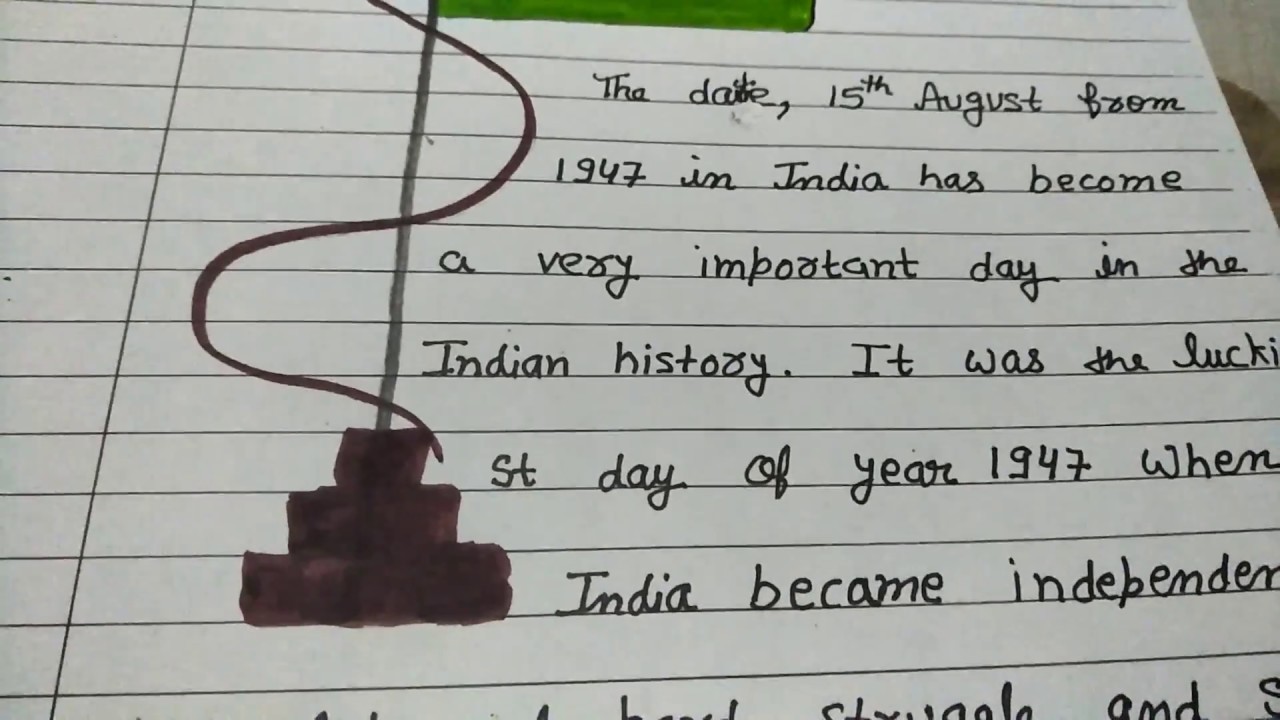 The date, 15th August from
1947 in India has become
a very important day in the
Indian history. It was the lucki
st day of year 1947 when
India became independen
struggle and